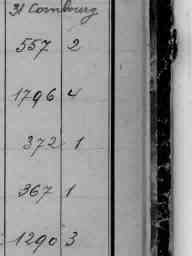 31 Combourg
557 2
1796 4
372 1
367 1
1290 3